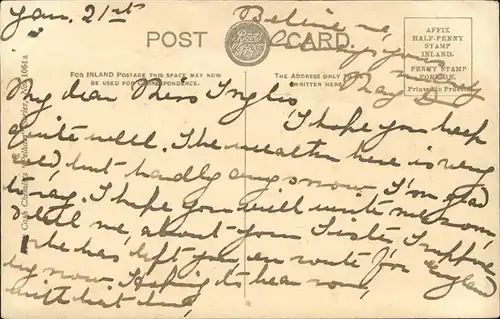 Jan. 21st
Believe me,
Yours
May
POST CARD
Boots
AFFIX
HALF-PENNY
STAMP
INLAND.
PENNY STAMP
FOREIGN.
Printed in
FOR INLAND POSTAGE THIS SPACE MAY NOW
BE USED FOR CORRESPONDENCE.
THE ADDRESS ONLY TO
WRITTEN HERE.
My dear Miss Inglis
I hope you keep
quite well. The weather here is very
but hardly any snow I'm glad
to say. I hope you will write me soon,
& tell me, about your Sister, I suppose
she has left you, en route for England
by now. Hoping to hear soon,
with best love,